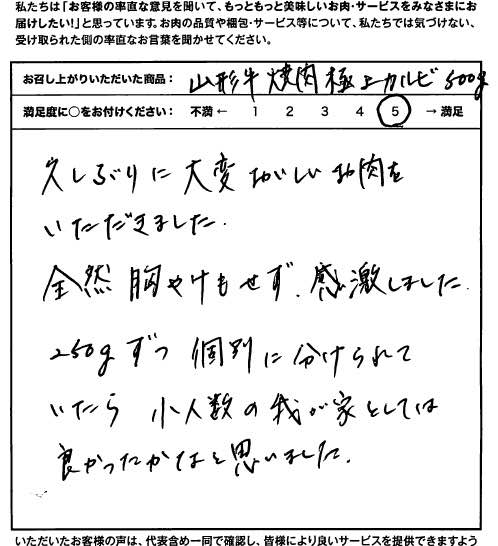 私たちは「お客様の率直な意見を聞いて、もっともっと美味しいお肉・サービスをみなさまにお
届けしたい！」と思っています。お肉の品質や梱包・サービス等について、私たちでは気づけない、
受け取られた側の率直なお言葉を聞かせてください。
お召し上がりいただいた商品： 山形牛 焼肉 極上カルビ 500g
満足度に○をお付けください： 不満 ← 1 2 3 4 5 → 満足
久しぶりに 大変 おいしい お肉を
いただきました.
全然 胸やけもせず、感激しました.
250gずつ 個別に分けられて
いたら 小人数の我が家としては
良かったかなと思いました.
いただいたお客様の声は、代表含め一同で確認し、皆様により良いサービスを提供できますよう